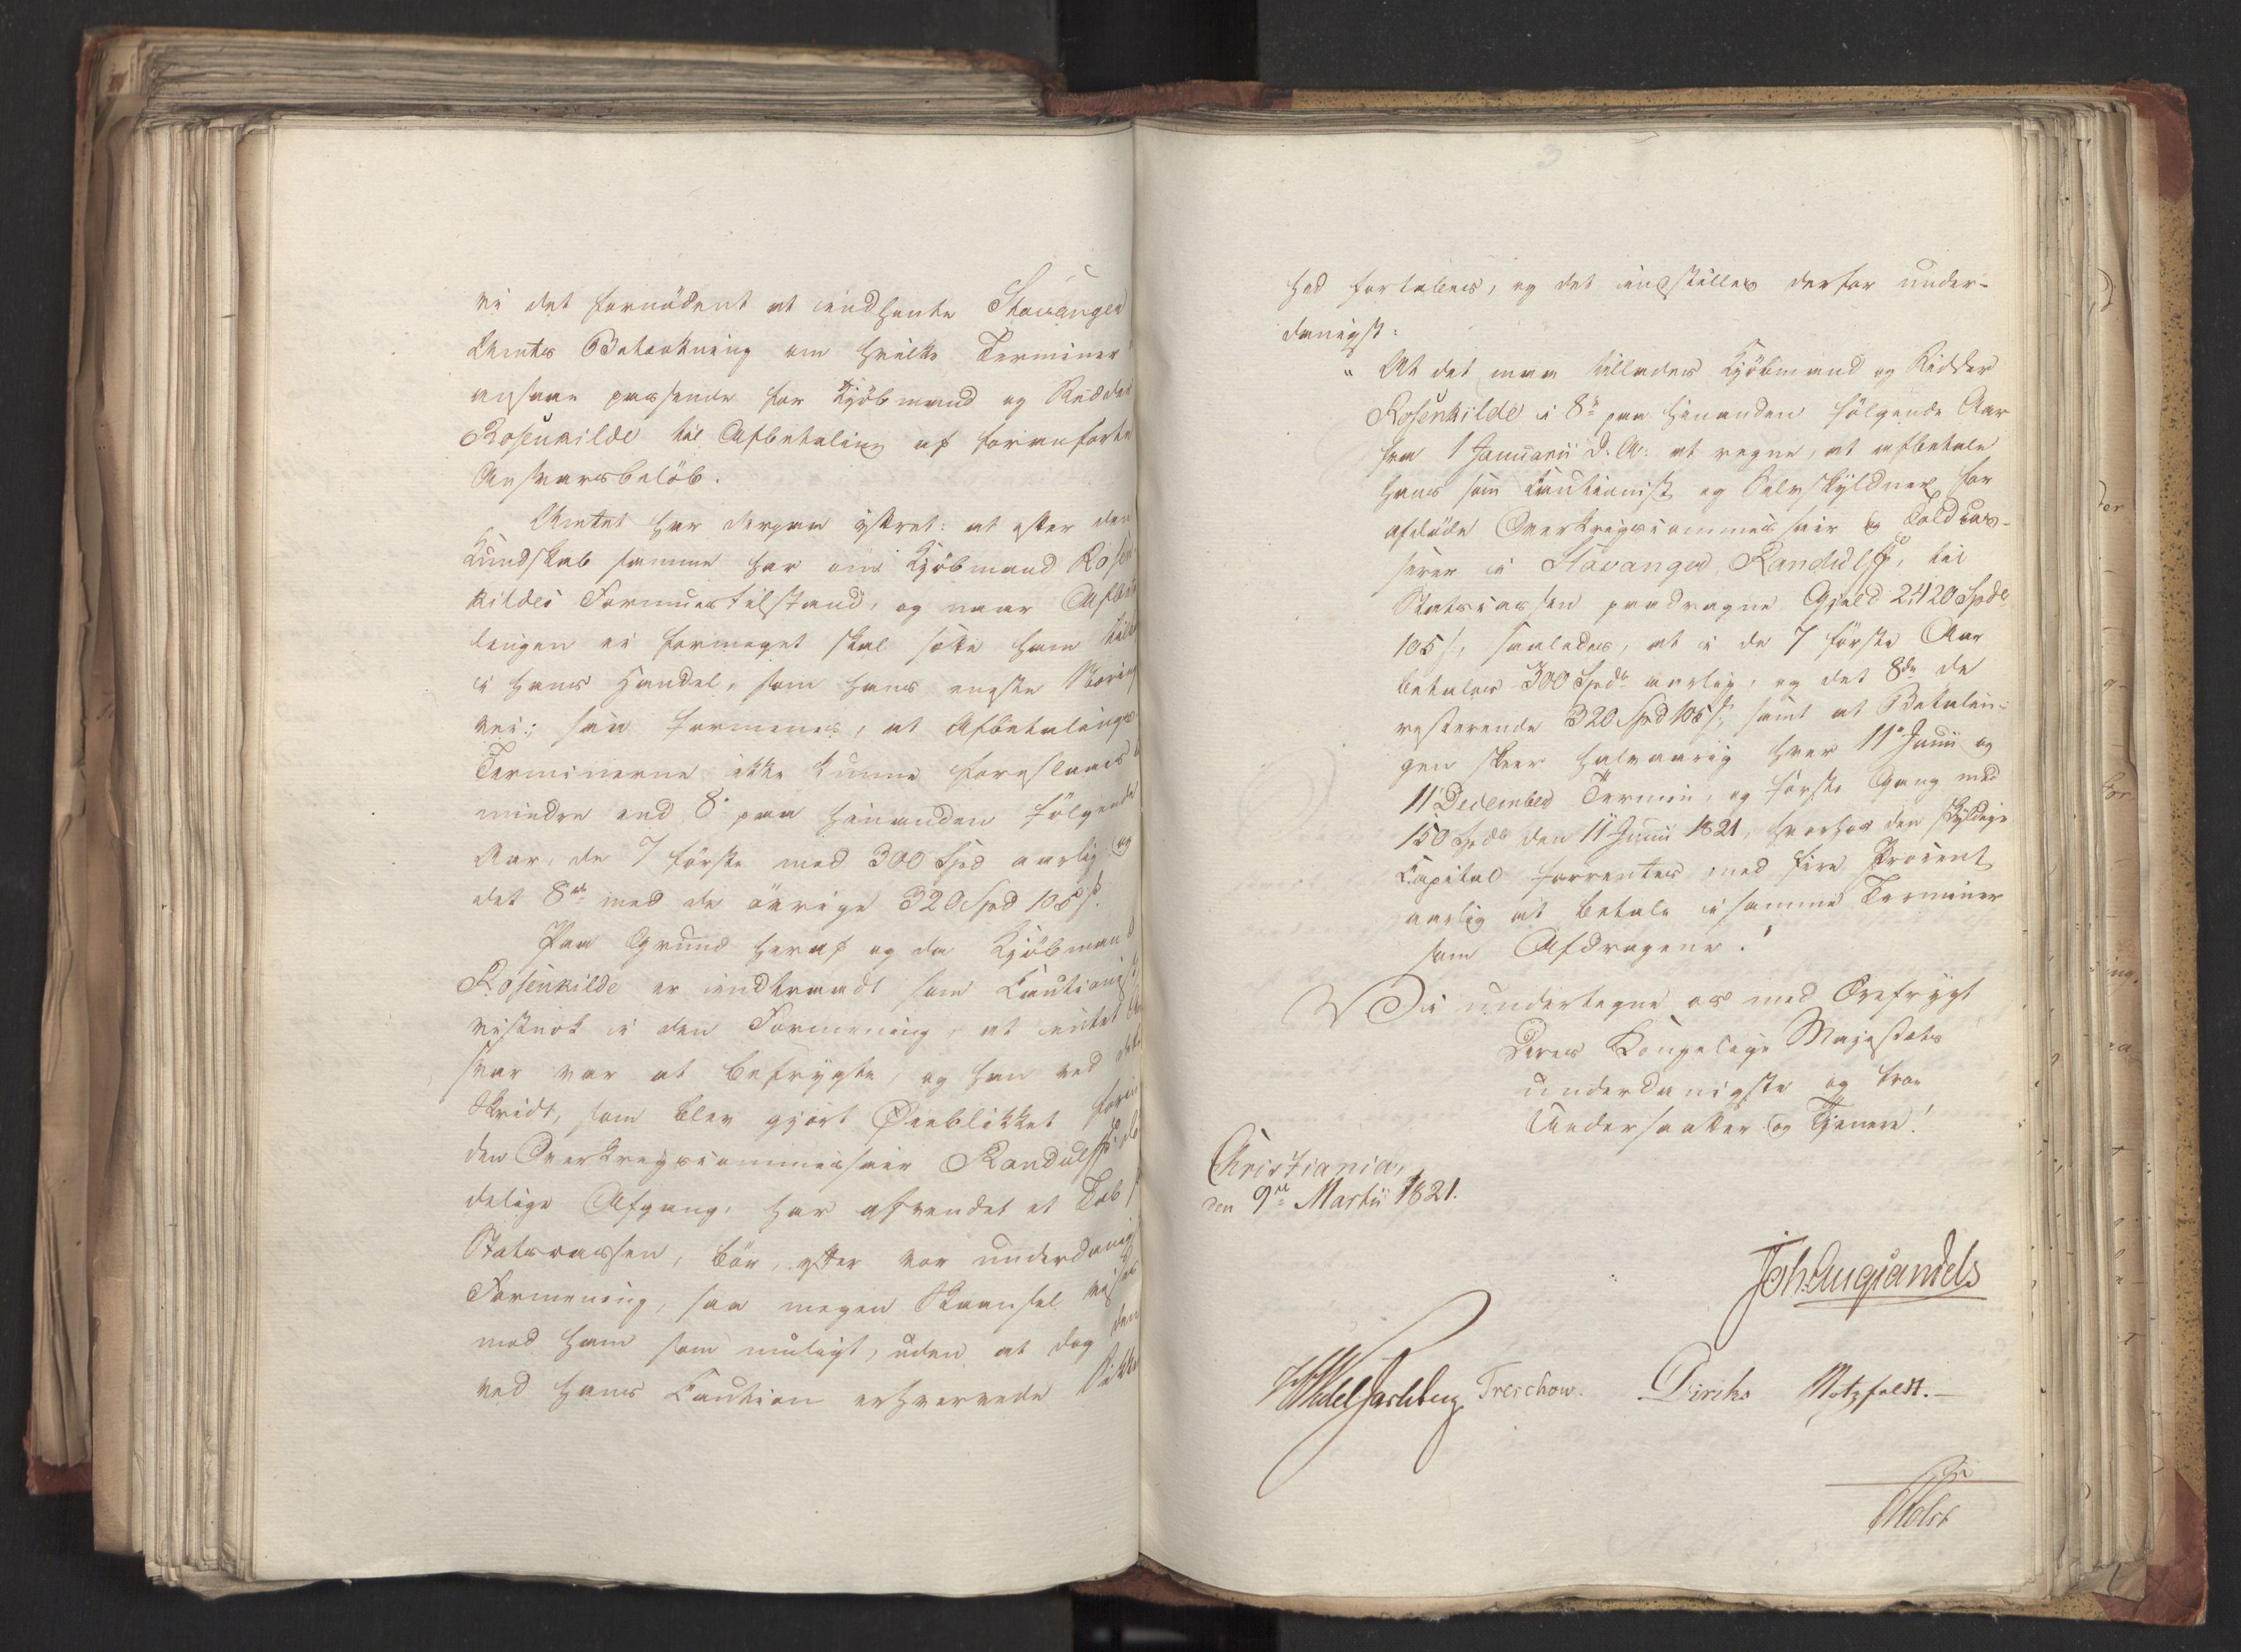 vi det fornödent at indhente Stavanger
Amts Betænkning om hvilke Terminer
ansaae passende for Kjöbmand og Ridder
Rosenkilde til Afbetaling af foranförte
Ansvarsbelöb.
Amtet har derpaa yttret: at efter den
Kundskab samme har om Kjöbmand Rosen-
kildes Formuestilstand, og naar Afbeta-
lingen ei formeget skal sætte ham tilbage
i hans Handel, som hans eneste Nærings-
vei; saa formenes, at Afbetalings
Terminerne ikke kunne foreslaaes
mindre end 8te paa hinanden fölgende
Aar, de 7 förste med 300 Spd aarlig og
det 8de med de övrige 320 Spd 105 s.
Paa Grund heraf og da Kjöbmand
Rosenkilde er indtraadt som Cautionist
vistnok i den Formening, at intet An-
svar var at befrygte, og han ved dette
Skridt, som blev gjort Öieblikket forin-
den Overkrigscommissair Randulffs dö-
delige Afgang, har afvendet et Tab for
Statscassen, bör, efter vor underdanigste
Formening, saa megen Skaansel vises
mod ham som muligt, uden at dog den
ved hans Caution erhvervede Sikker-
hed fortabes, og det indstilles derfor under-
danigst:
"At det maa tillades Kjöbmand og Ridder
Rosenkilde i 8te paa hinanden fölgende Aar
fra 1 Januarii d. A. at regne, at afbetale
hans som Cautionist og Selvskyldner for
afdöde Overkrigscommissair og Toldcas-
serer i Stavanger, Randulff, til
Statscassen paadragne Gjeld 2420 Spdr
105 s, saaledes, at i de 7 förste Aar
betales 300 Spdr aarlig, og det 8de de
resterende 320 Spd 105 s, samt at Betalin-
gen skeer halvaarig hver 11te Junii og
11 December Termin, og förste Gang med
150 Spdr den 11 Junii 1821, hvorhos den skyldige
Capital forrentes med fire Procent
aarlig at betale i samme Terminer
som Afdragene."
Vi undertegne os med Ærefrygt
Deres Kongelige Majestæts
underdanigste og troe
Undersaatter og Tjenere!
Christiania,
den 9de Martii 1821.
Joh. Aug. Sandels
Wedel Jarlsberg Treschow. Diriks Motzfeldt.
Holst